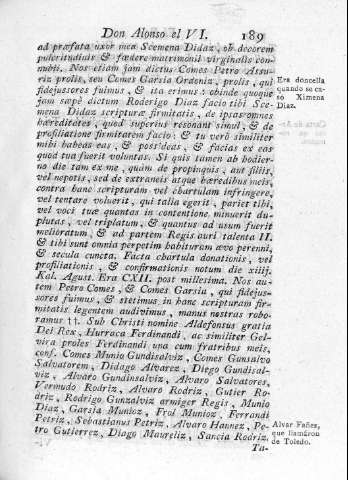 Don Alonso el VI. 189
ad præfata uxor mea Scemena Didaz, ob decorem
pulcritudinis & fœdere matrimonii virginalis con-
nubii. Nos etiam jam dictus Comes Petro Assu-
riz prolis, seu Comes Garsia Ordoniz, prolis, qui
fidejussores fuimus, & ita erimus: obinde quoque
jam sæpè dictum Roderigo Diaz facio tibi Sce-
mena Didaz scripturæ firmitatis, de ipsas omnes
hæreditates, quod superius resonant simul, & de
profiliatione firmitatem facio: & tu verò similiter
mihi babeas eas, & possideas, & facias ex eas
quod tua fuerit voluntas. Si quis tamen ab hodier-
no die tam ex me, quàm de propinquis, aut filiis,
vel nepotis, sed de extraneis atque hæredibus meis,
contra hanc scripturam vel chartulam infringere,
vel tentare voluerit, qui talia egerit, pariet tibi,
vel voci tuæ quantas in contentione minuerit du-
plutas, vel triplatum, & quantus ad usum fuerit
melioratum, & ad partem Regis auri talenta II.
& tibi sunt omnia perpetim habituram ævo perenni,
& secula cuncta. Facta chartula donationis, vel
profiliationis, & confirmationis notum die xiiij.
Kal. Agust. Era CXII. post millesima. Nos au-
tem Petro Comes, & Comes Garsia, qui fidejus-
sores fuimus, & stetimus in hanc scripturam fir-
mitatis legentem audivimus, manus nostras robo-
ramus ††. Sub Christi nomine Aldefonsus gratia
Dei Rex, Hurraca Ferdinandi, ac similiter Gel-
vira proles Ferdinandi una cum fratribus meis,
conf. Comes Munio Gundisalviz, Comes Gunsalvo
Salvatorem, Didago Alvarez, Diego Gundisal-
viz, Alvaro Gundinsalviz, Alvaro Salvatores,
Vermudo Rodriz, Alvaro Rodriz, Gutier Ro-
driz, Rodrigo Gunzalviz armiger Regis, Munio
Diaz, Garsia Munioz, Frol Munioz, Ferrandi
Petriz, Sebastianus Petriz, Alvaro Hannez, Pe-
tro Gutierrez, Diago Maureliz, Sancia Rodriz,
Ta-
Era doncella
quando se ca-
Ximena
Diaz.
Alvar Fañez,
que llamáron
de Toledo.